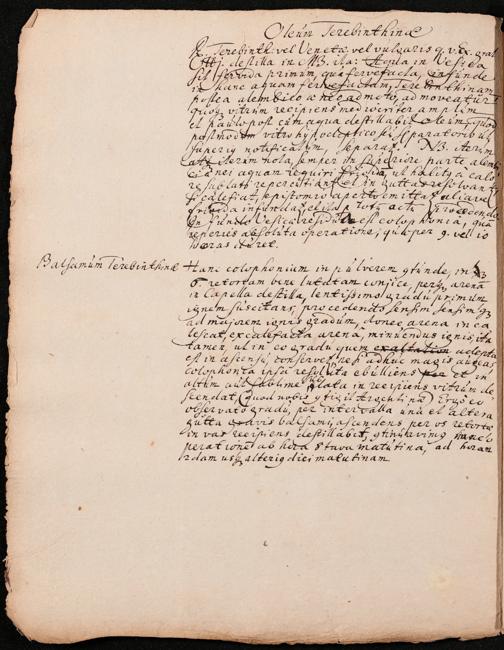 Oleum Terebinthinæ
℞. Terebinth: vel Venetæ vel vulgaris q. v. Ex. grat
destilla in MB. ita: Aqua in Vesica
sit fervida primum, qua fervefacta, infunde
in hanc aquam fervefactam, Terebinthinam
postea alembico æneo admoto, admoveatur
vitrum recipiens mediocriter amplum
et paulo post cum aqua destillabit oleum,
postmodum vitro hypocleptico separatoribus
superiq notificatum, separat. NB. iterum
semper in superiore parte alembici
ænei aquam requiri frigida, ut halitq a calo
re sublati repercutiant et in guttas resolvant
si calefiat, epistomio aperto emittat aliave
frigida infundat, et ita toto actu procedendo
In fundo Vesicæ residua est colophonia, quam
reperies absoluta operatione, quæ per 9. vel 10
horas duret.
Balsamum Terebinthinæ Hanc colophonium in pulverem gtunde, in
retortam bene lutatam conjice, perq arena
in Capella destilla, lentissimo gradu primum
ignem suscitans, procedendo sensim sensimq3
ad majorem ignis gradum, donec arena in ca
lescat, excalefacta arena, minuendus ignis, ita
tamen, ut in eo gradu quem exaltation adepta
est in ascensu, conservet, ne si adhuc magis augeas
colophonia ipsa resoluta ebulliens per et in
altum sublimata in recipiens vitrum de
scendat, (quod nobis gtigit Argentinæ) Ergo eo
observato gradu, per intervalla una et altera
gutta gravis balsami, ascendens per os retortæ
in vas recipiens destillabit, gtinuaving hanc o
perationem ab hora 8tava matutina, ad horam
2dam usq3 alterig diei matutinam.